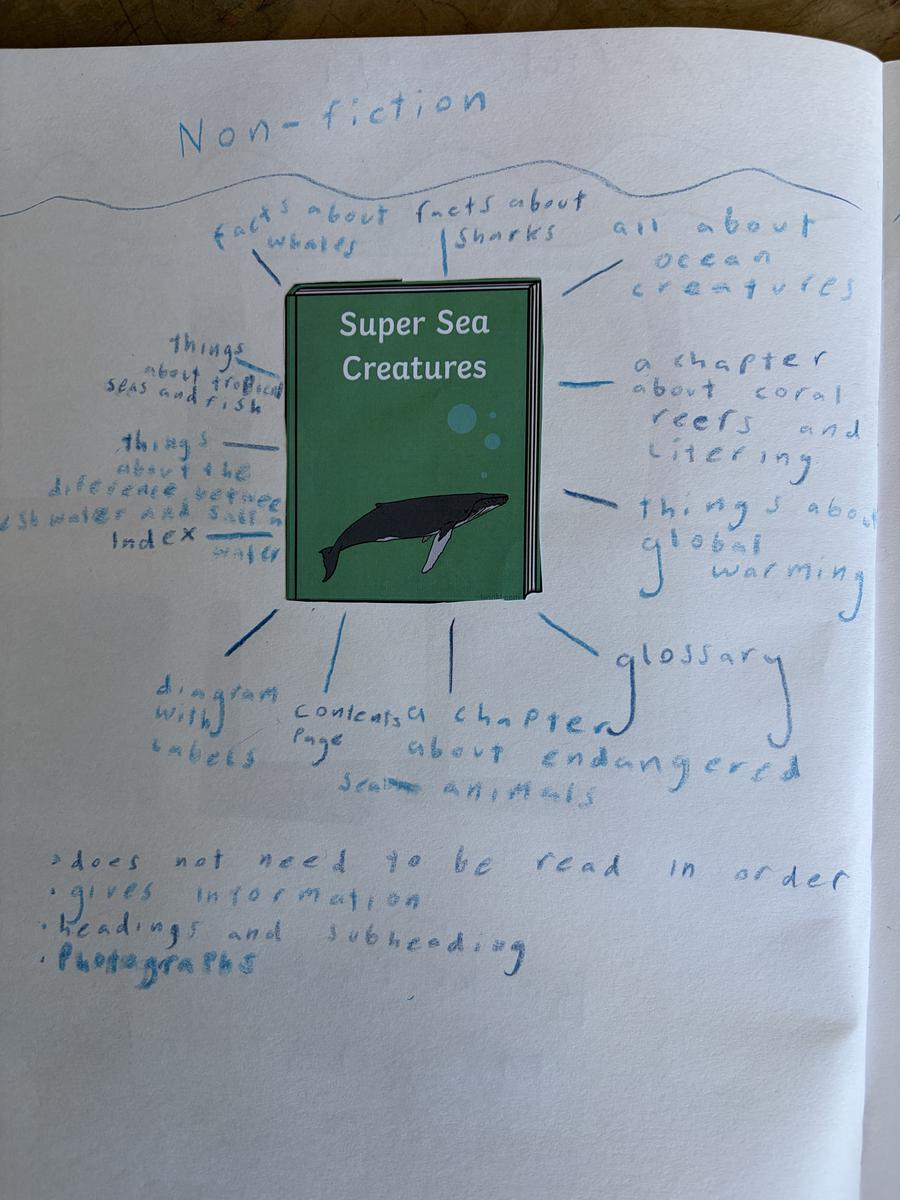 Non-fiction
facts about
whales
facts about
sharks
all about
ocean
creatures
Super Sea
Creatures
things
about tropical
seas and fish
a chapter
about coral
reefs and
litering
things
about the
diference betwee
esh water and salt
water
things about
global
warming
Index
glossary
diagram
with
labels
contents
page
a chapter
about endangered
sea animals
does not need to be read in order
gives information
headings and subheading
Photographs